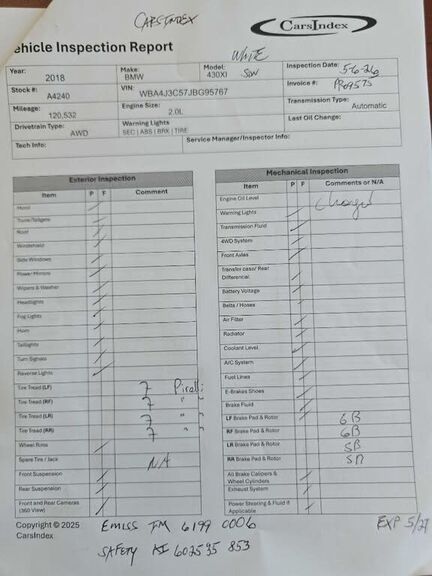 CARSINDEX
CarsIndex
ehicle Inspection Report
WHITE
Year: 2018
Make: BMW
Model: 430XI SDN
Inspection Date: 5-6-26
Stock #: A4240
VIN: WBA4J3C57JBG95767
Invoice #:
Mileage: 120,532
Engine Size: 2.0L
Transmission Type: Automatic
Drivetrain Type: AWD
Warning Lights
SEC | ABS | BRK | TIRE
Last Oil Change:
Tech Info:
Service Manager/Inspector Info:
Exterior Inspection
Item P F Comment
Hood
Trunk/Tailgate
Roof
Windshield
Side Windows
Power Mirrors
Wipers & Washer
Headlights
Fog Lights
Horn
Taillights
Turn Signals
Reverse Lights
Tire Tread (LF) 7 Pirelli
Tire Tread (RF) 7 "
Tire Tread (LR) 7 "
Tire Tread (RR) 7 "
Wheel Rims
Spare Tire / Jack N/A
Front Suspension
Rear Suspension
Front and Rear Cameras
(360 View)
Mechanical Inspection
Item P F Comments or N/A
Engine Oil Level
Warning Lights
Transmission Fluid
4WD System
Front Axles
Transfer case/ Rear
Differential
Battery Voltage
Belts / Hoses
Air Filter
Radiator
Coolant Level
A/C System
Fuel Lines
E-Brakes Shoes
Brake Fluid
LF Brake Pad & Rotor 6B
RF Brake Pad & Rotor 6B
LR Brake Pad & Rotor 5B
RR Brake Pad & Rotor
All Brake Calipers &
Wheel Cylinders
Exhaust System
Power Steering & Fluid if
Applicable
Copyright © 2025
CarsIndex
EMISS TM 6199 0006
EXP 5/27
SAFETY AI 602535 853